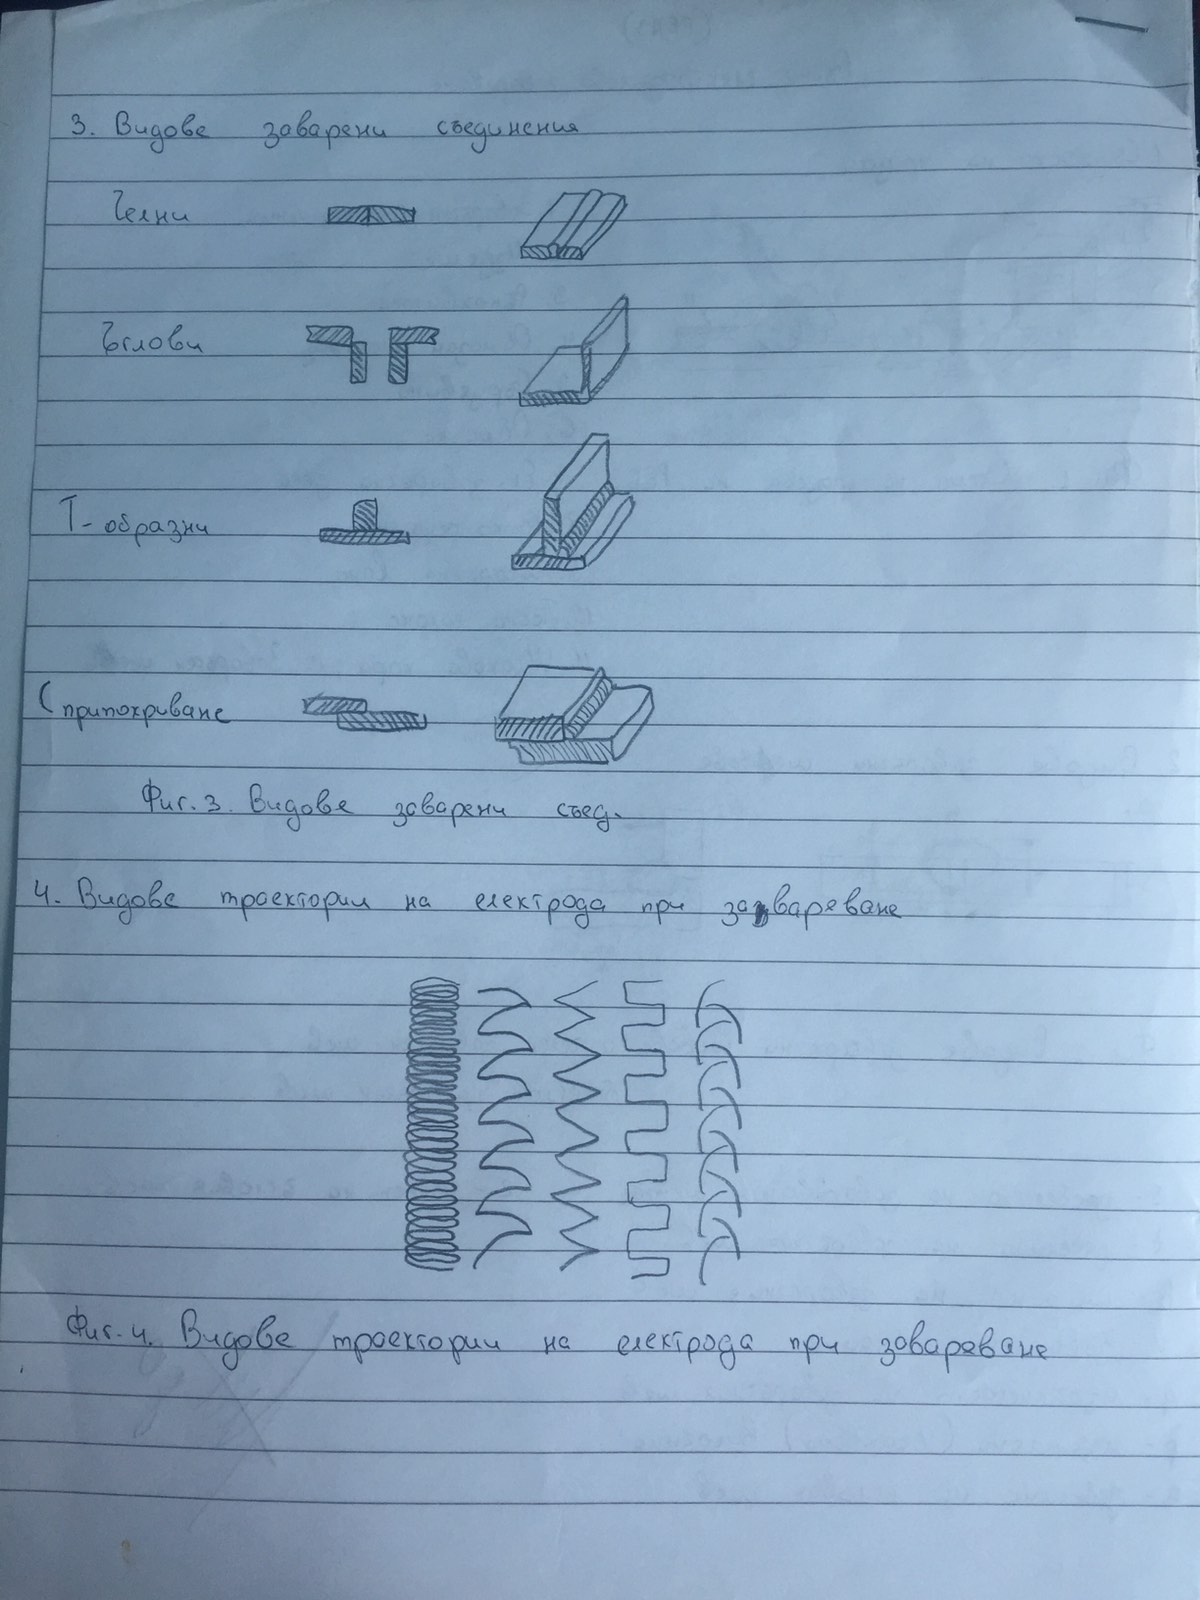 3. Видове заварени съединения
Челни
Ъглови
Т-образни
С припокриване
Фиг. 3. Видове заварени съед.
4. Видове троектории на електрода при заваряване
Фиг. 4. Видове троектории на електрода при заваряване